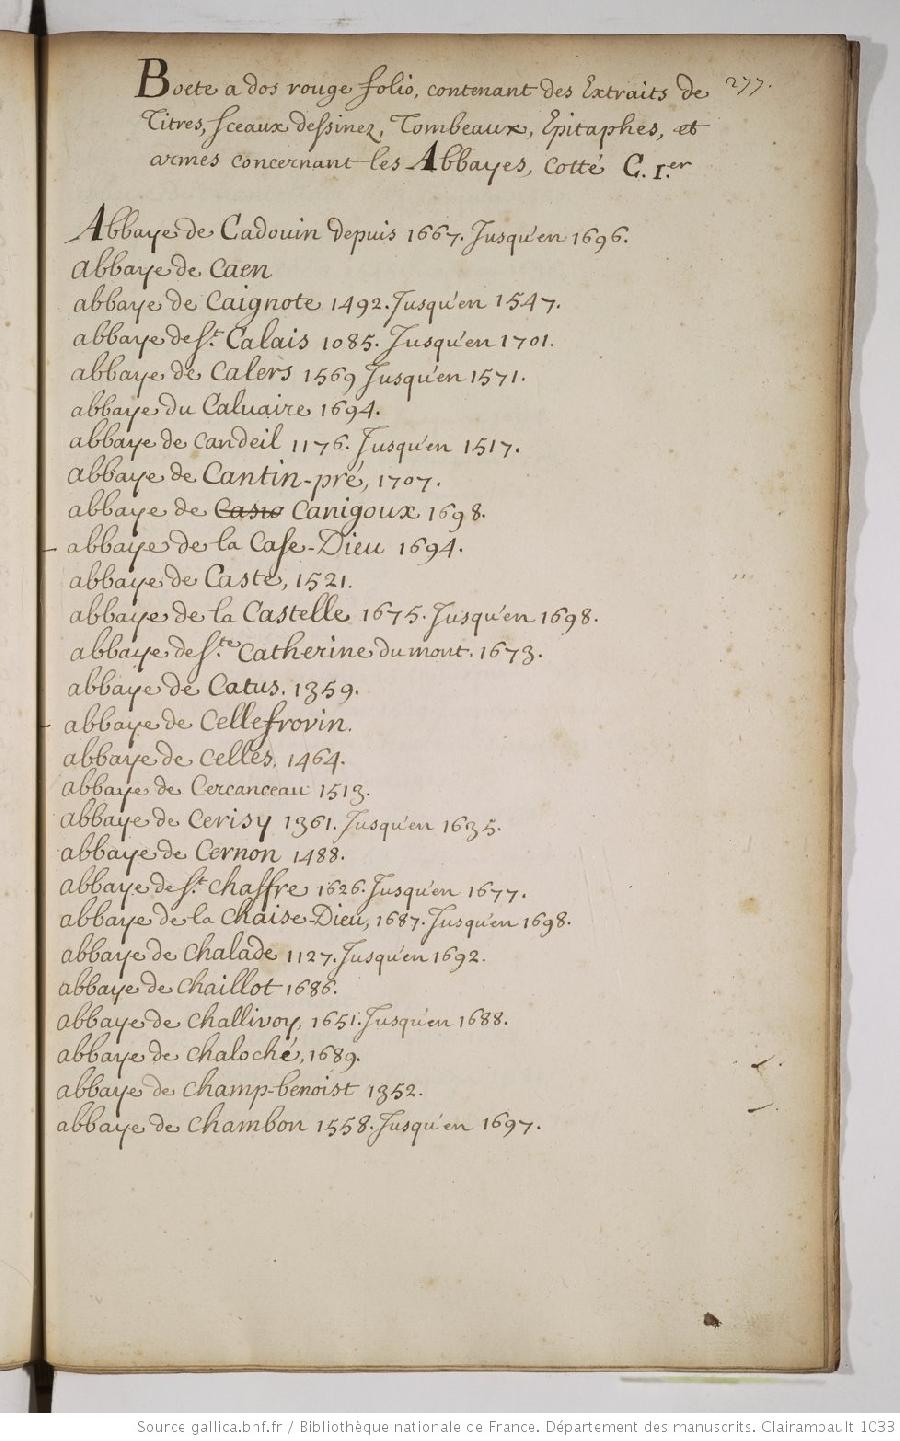 277.
Boete a dos rouge folio, contenant des Extraits de
Titres, sceaux dessinez, Tombeaux, Epitaphes, et
armes concernant les Abbayes, cotté C. 1.er
Abbaye de Cadouin depuis 1667. Jusqu'en 1696.
abbaye de Caen
abbaye de Caignote 1492. Jusqu'en 1547.
abbaye de St. Calais 1085. Jusqu'en 1701.
abbaye de Calers 1569 Jusqu'en 1571.
abbaye du Caluaire 1694.
abbaye de Candeil 1176. Jusqu'en 1517.
abbaye de Cantin-pré, 1707.
abbaye de Canigoux 1698.
abbaye de la Case-Dieu 1694.
abbaye de Caste, 1521.
abbaye de la Castelle 1675. Jusqu'en 1698.
abbaye de Ste. Catherine du mont. 1673.
abbaye de Catus. 1359.
abbaye de Cellefrovin.
abbaye de Celles. 1464.
abbaye de Cercanceau 1513.
abbaye de Cerisy 1361. Jusqu'en 1635.
abbaye de Cernon 1488.
abbaye de St. Chaffre 1626. Jusqu'en 1677.
abbaye de la Chaise-Dieu, 1687. Jusqu'en 1698.
abbaye de Chalade 1127. Jusqu'en 1692.
abbaye de Chaillot 1686.
abbaye de Challivoy, 1651. Jusqu'en 1688.
abbaye de Chaloché, 1689.
abbaye de Champ-benoist 1352.
abbaye de Chambon 1558. Jusqu'en 1697.
Source gallica.bnf.fr / Bibliothèque nationale de France. Département des manuscrits. Clairambault 1033